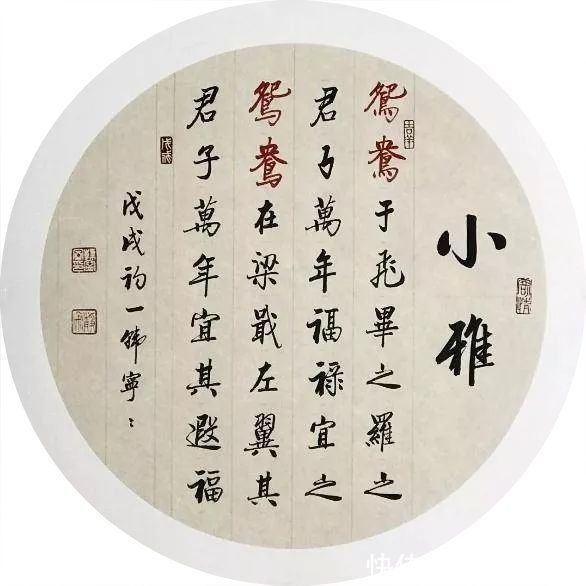 小雅
鴛鴦于飛畢之羅之
君子萬年福祿宜之
鴛鴦在梁戢左翼其
君子萬年宜其遐福
戊戌初一韓寧〻
吉羊
戊戌